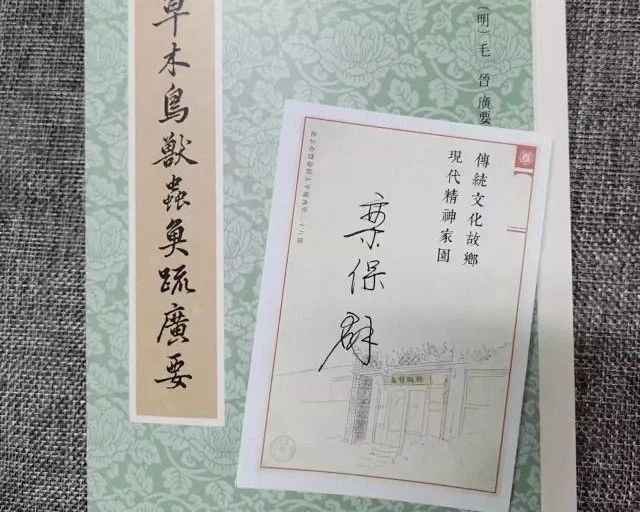 草木鳥獸蟲魚疏廣要
（明）毛 晉 廣要
傳統文化故鄉
現代精神家園
栾保群